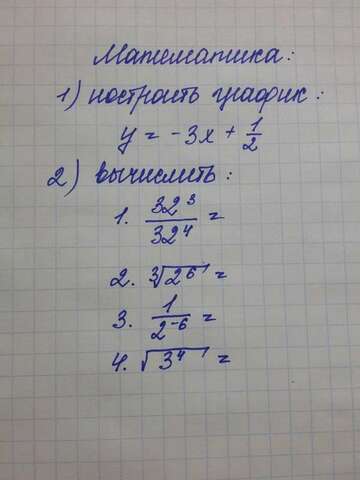 Математика:
1) построить график:
y = -3x + 1/2
2) вычислить:
1. 32³/32⁴ =
2. ³√2⁶ =
3. 1/2⁻⁶ =
4. √3⁴ =